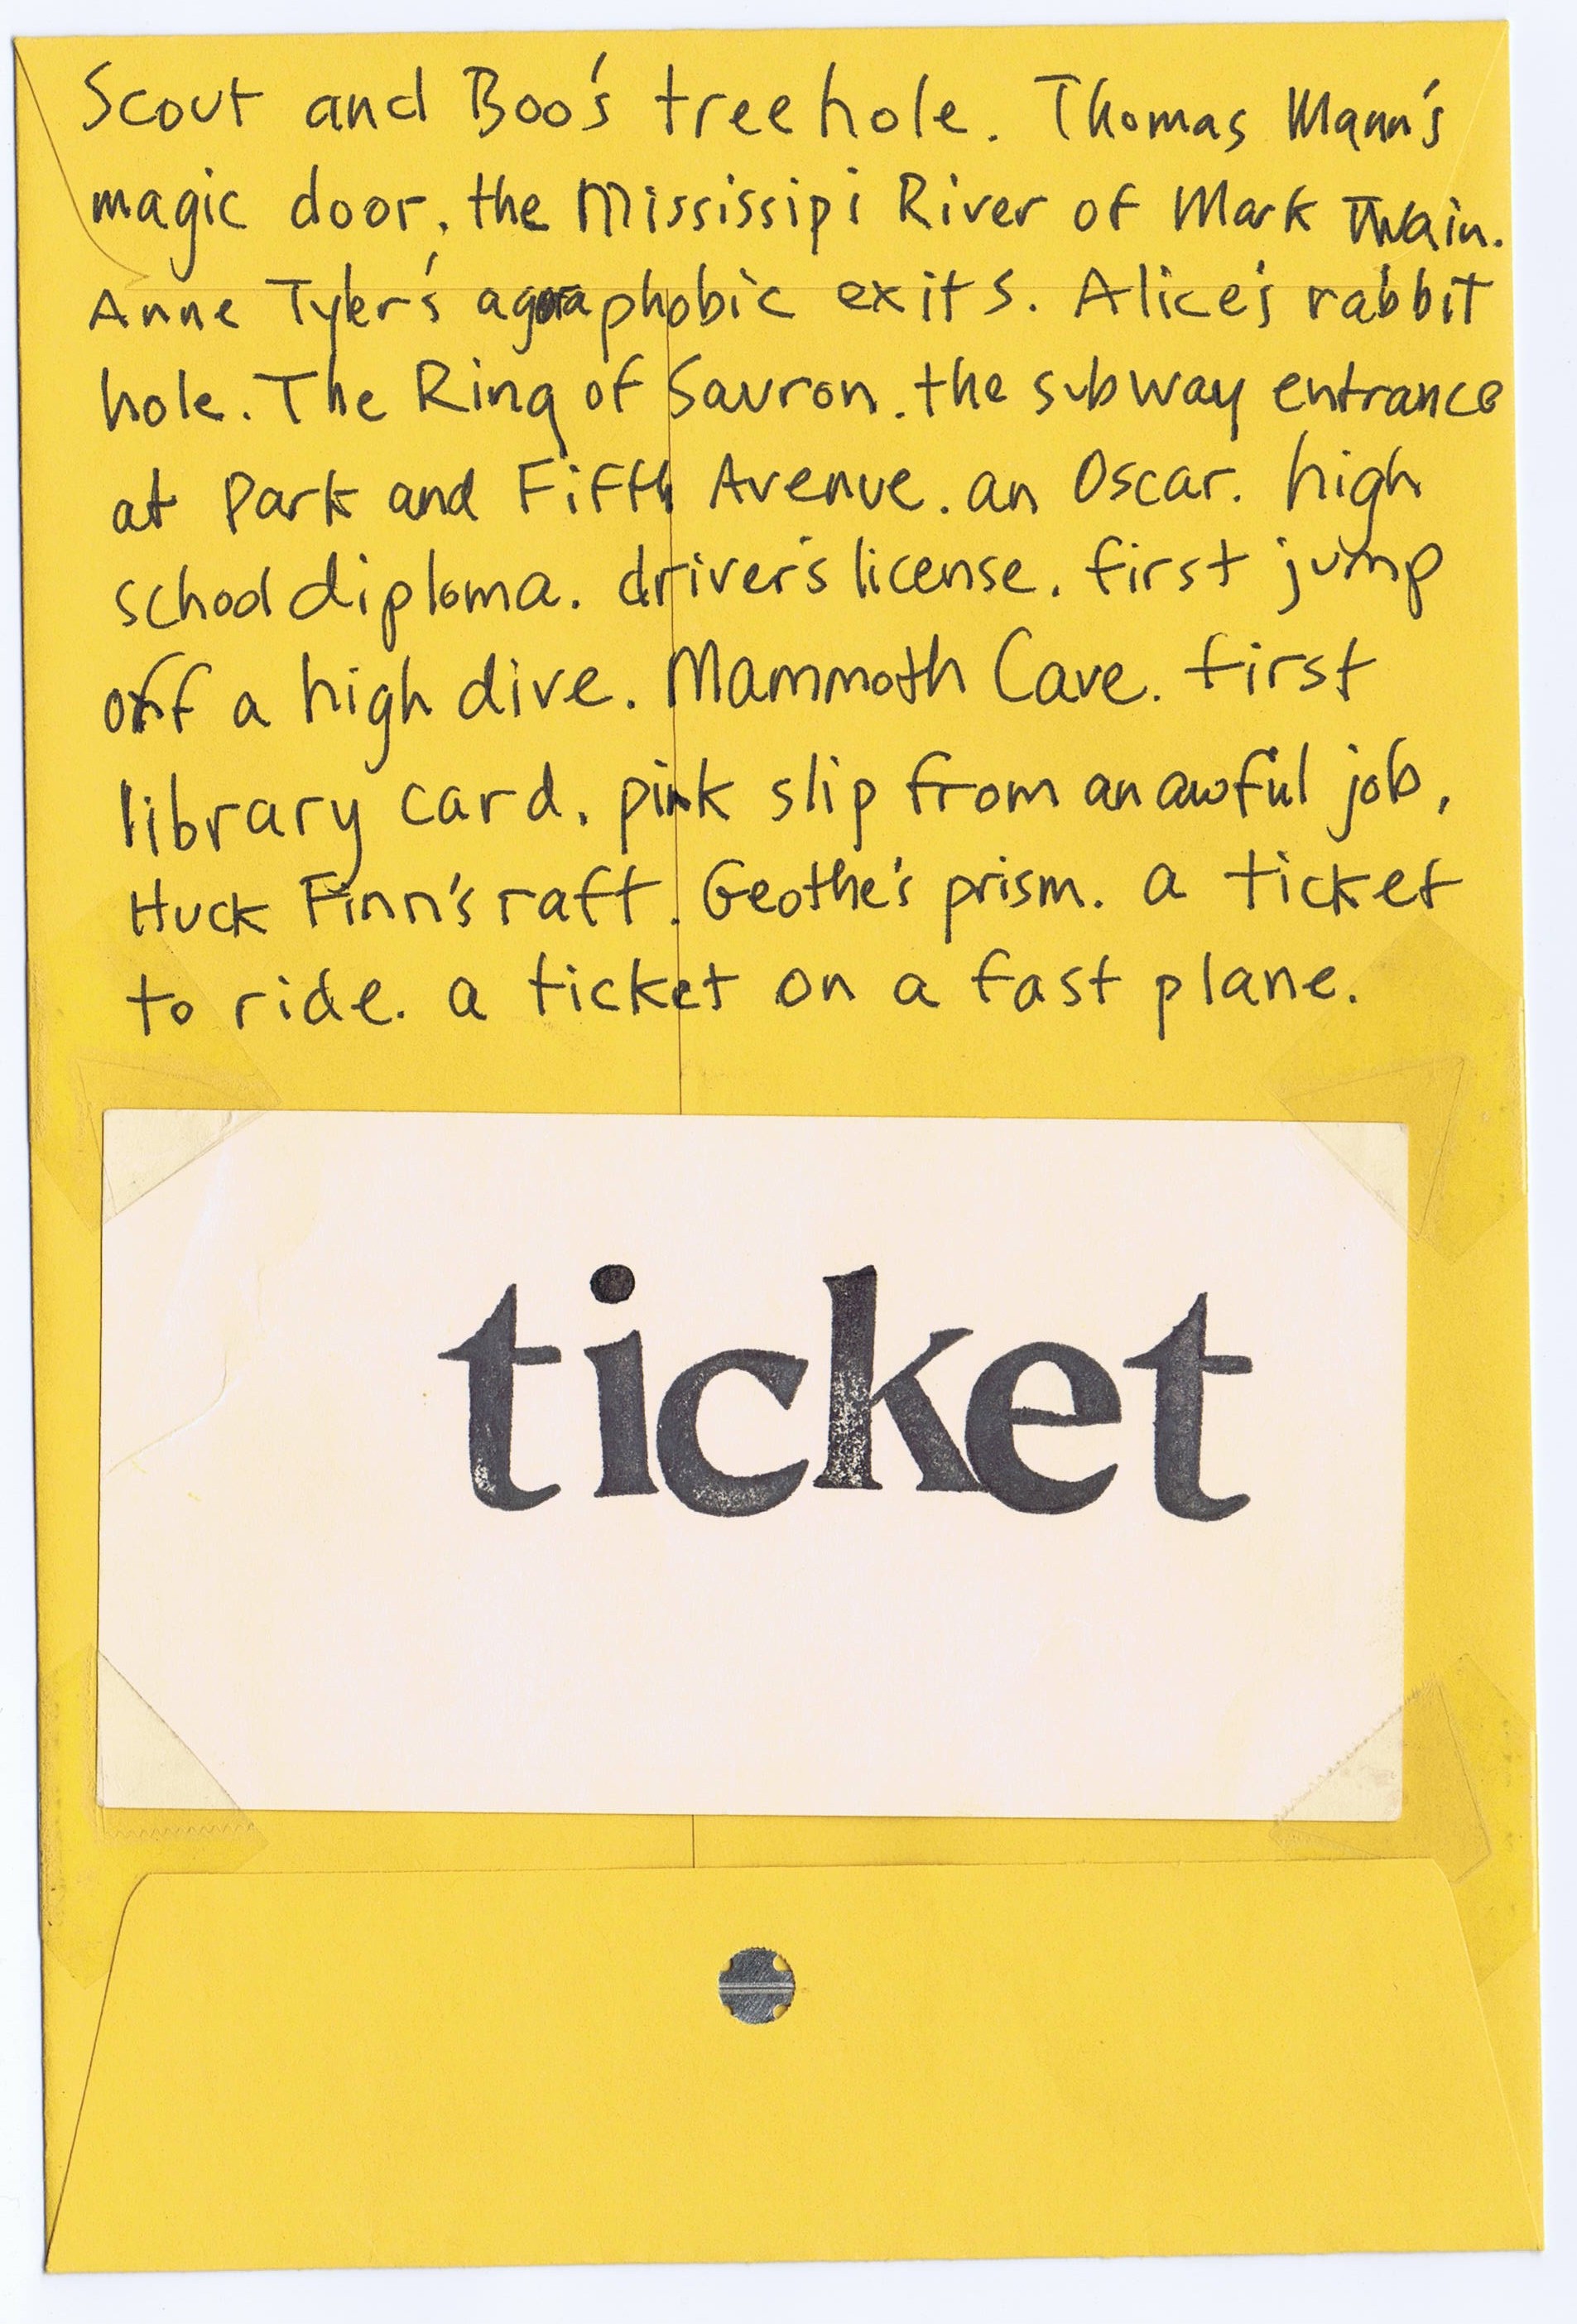 Scout and Boo's tree hole. Thomas Mann's
magic door. the Mississipi River of Mark Twain.
Anne Tyler's agoraphobic exits. Alice's rabbit
hole. The Ring of Sauron. the subway entrance
at Park and Fifth Avenue. an Oscar. high
school diploma. driver's license. first jump
off a high dive. Mammoth Cave. first
library card. pink slip from an awful job,
Huck Finn's raft. Geothe's prism. a ticket
to ride. a ticket on a fast plane.
ticket